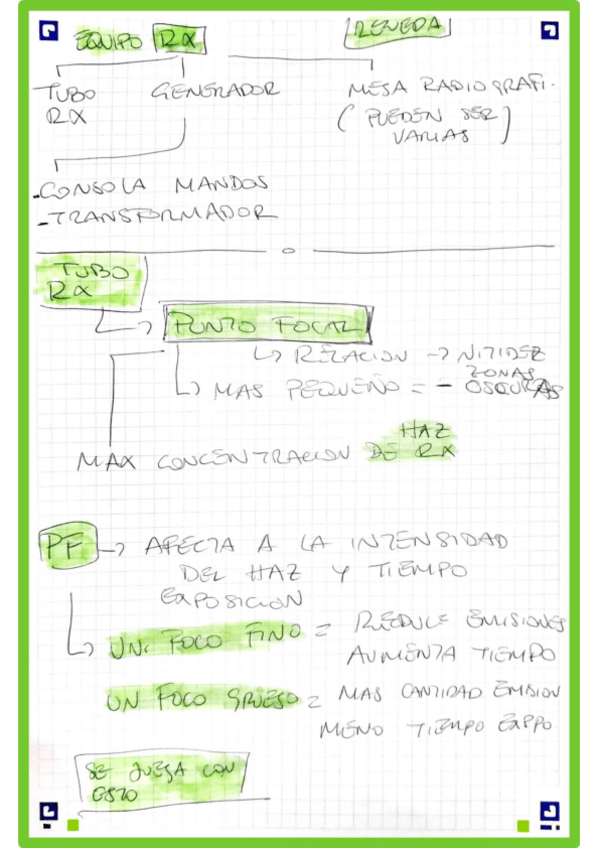 EQUIPO RX
TUBO
RX
GENERADOR
MESA RADIOGRAFI.
( PUEDEN SER
VARIAS )
-CONSOLA MANDOS
-TRANSFORMADOR
TUBO
RX
PUNTO FOCAL
RELACION → NITIDEZ
MAS PEQUEÑO = - ZONAS
OSCURAS
MAX CONCENTRACION DE HAZ
RX
PF → AFECTA A LA INTENSIDAD
DEL HAZ Y TIEMPO
EXPOSICION
UN FOCO FINO = REDUCE EMISIONES
AUMENTA TIEMPO
UN FOCO GRUESO = MAS CANTIDAD EMISION
MENO TIEMPO EXPO
SE JUEGA CON
ESTO